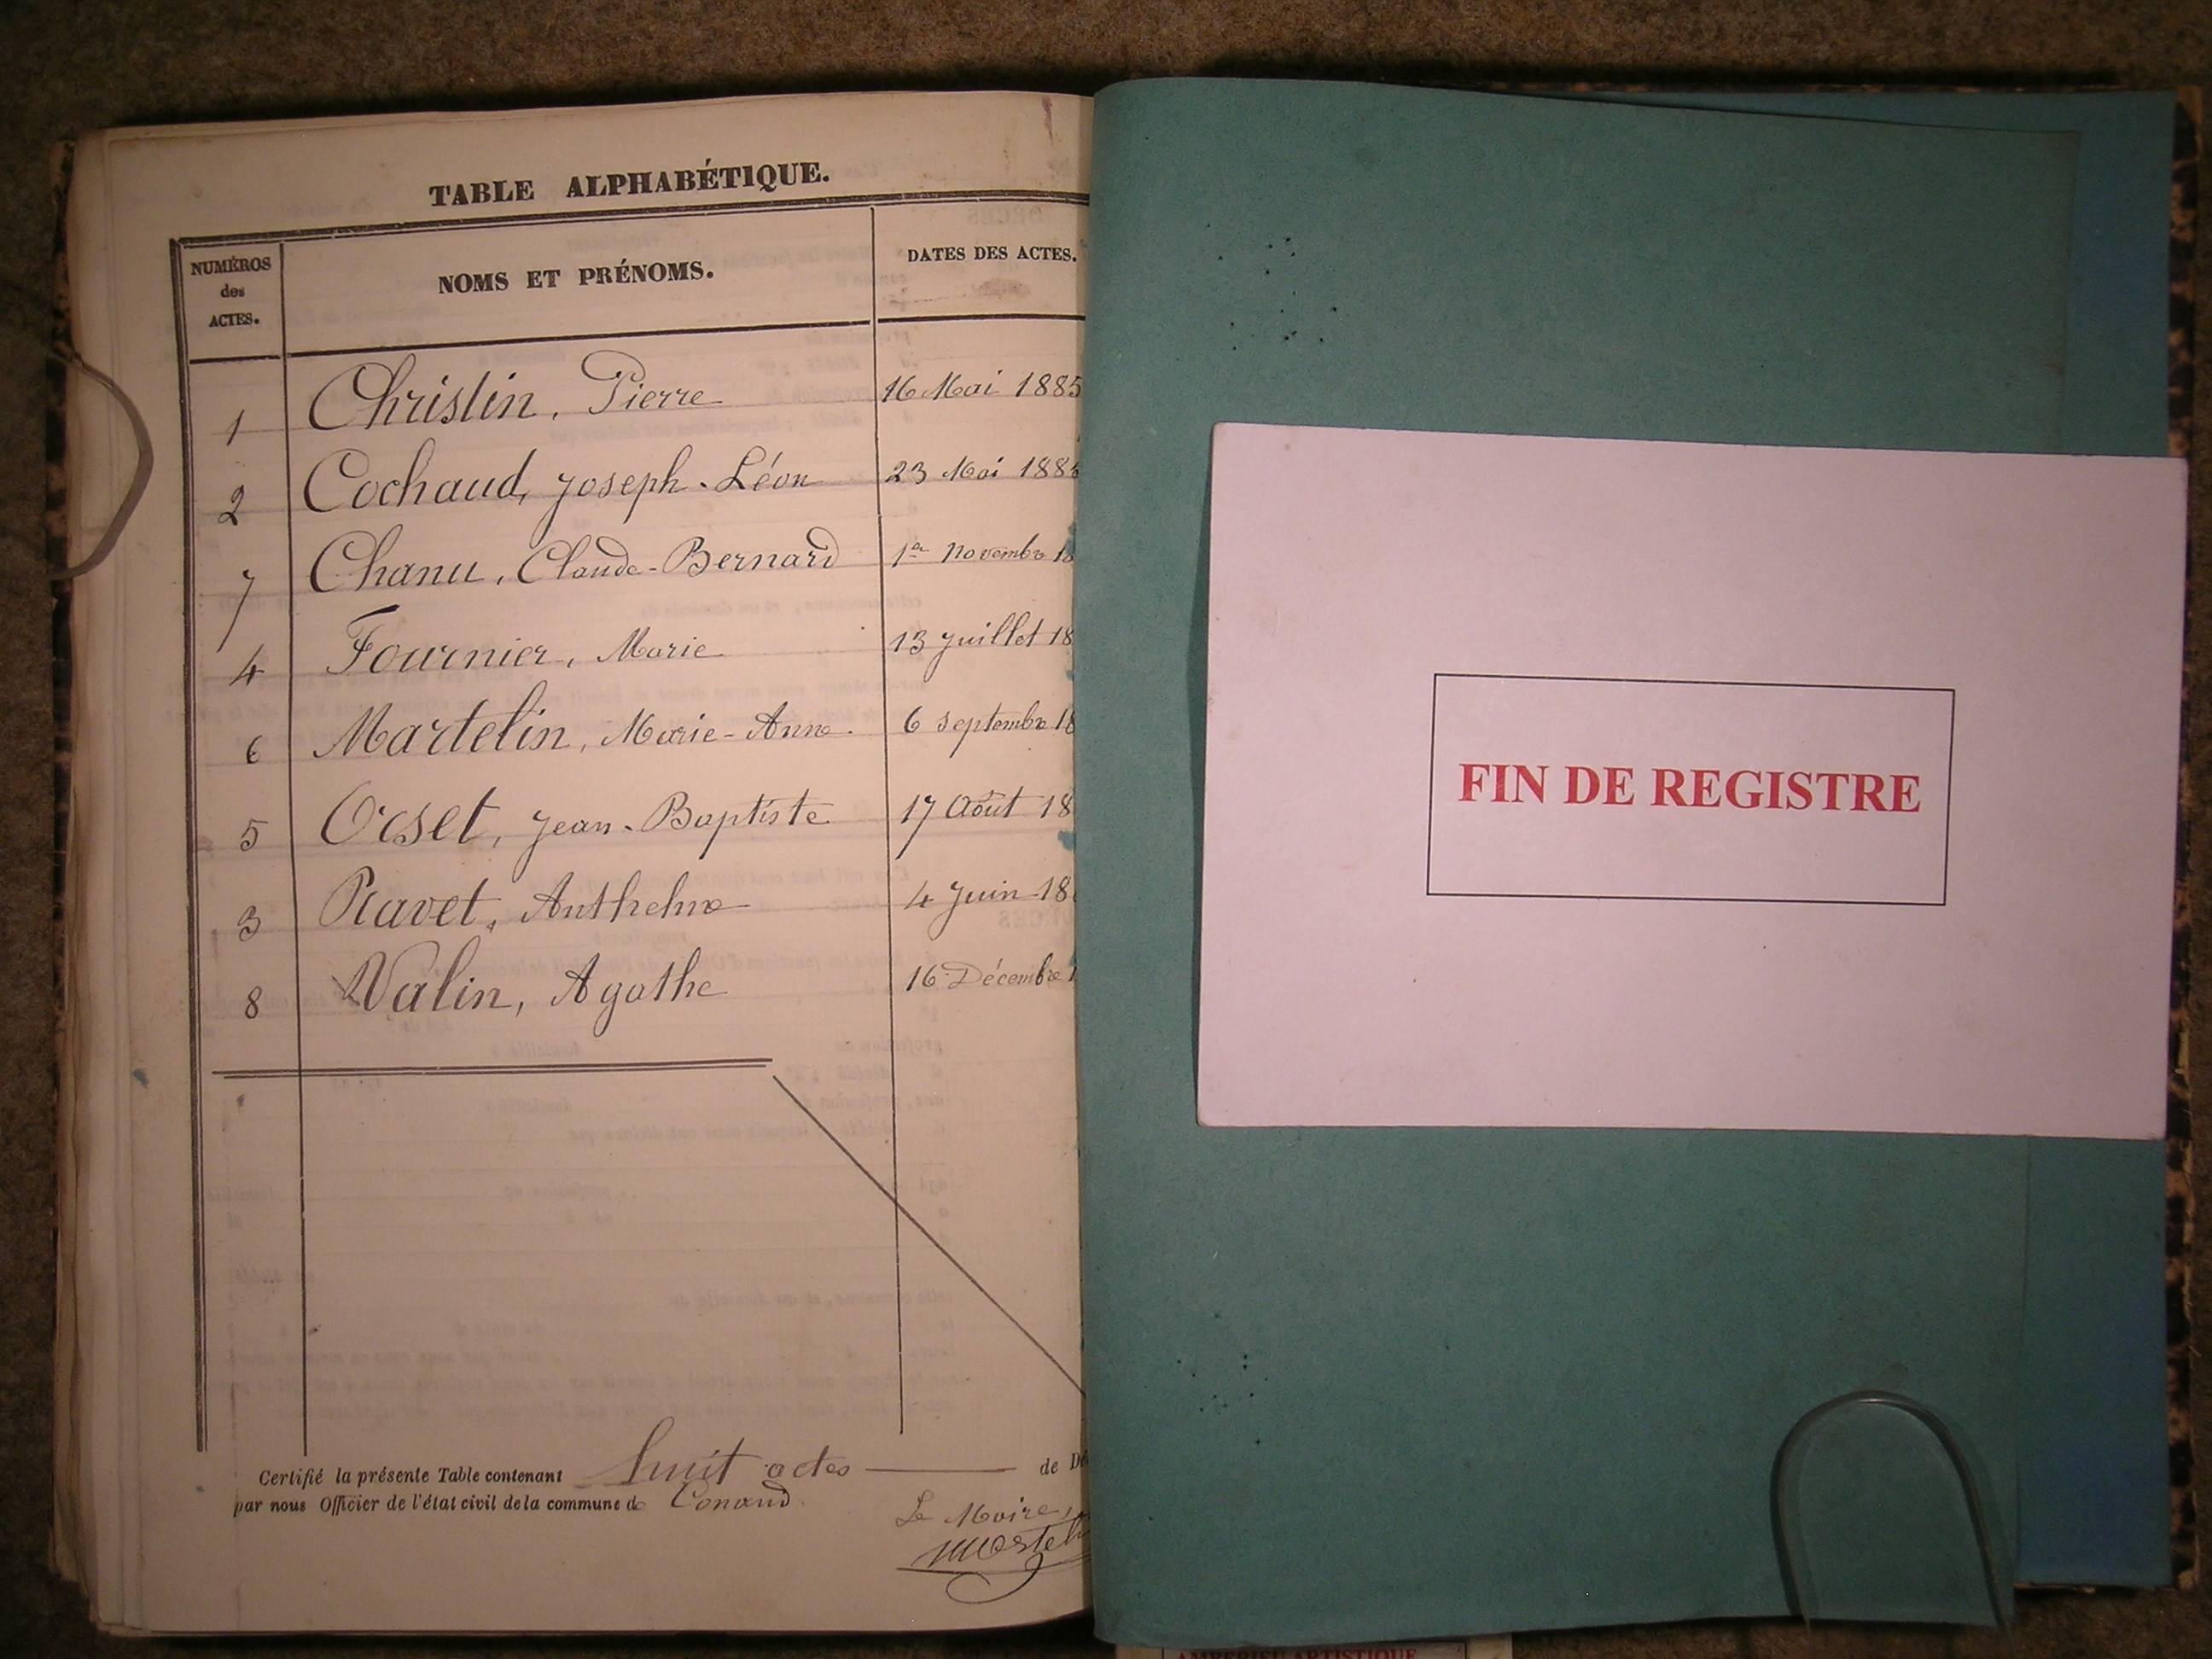 TABLE ALPHABÉTIQUE.
NUMÉROS
des
ACTES.
NOMS ET PRÉNOMS.
DATES DES ACTES.
1 Christin, Pierre 16 Mai 1885
2 Cochaud, Joseph-Léon 23 Mai 188
7 Chanu, Claude-Bernard 1er novembre 18
4 Fournier, Marie 13 Juillet 18
6 Martelin, Marie-Anne. 6 septembre 18
5 Orset, Jean-Baptiste 17 Août 18
3 Ravet, Anthelme 4 Juin 18
8 Valin, Agathe 16 Décembre 1
Certifié la présente Table contenant huit actes de Dé
par nous Officier de l'état civil de la commune de Conand.
Le Maire,
Martel
FIN DE REGISTRE
AMBERIEU ARTISTIQUE